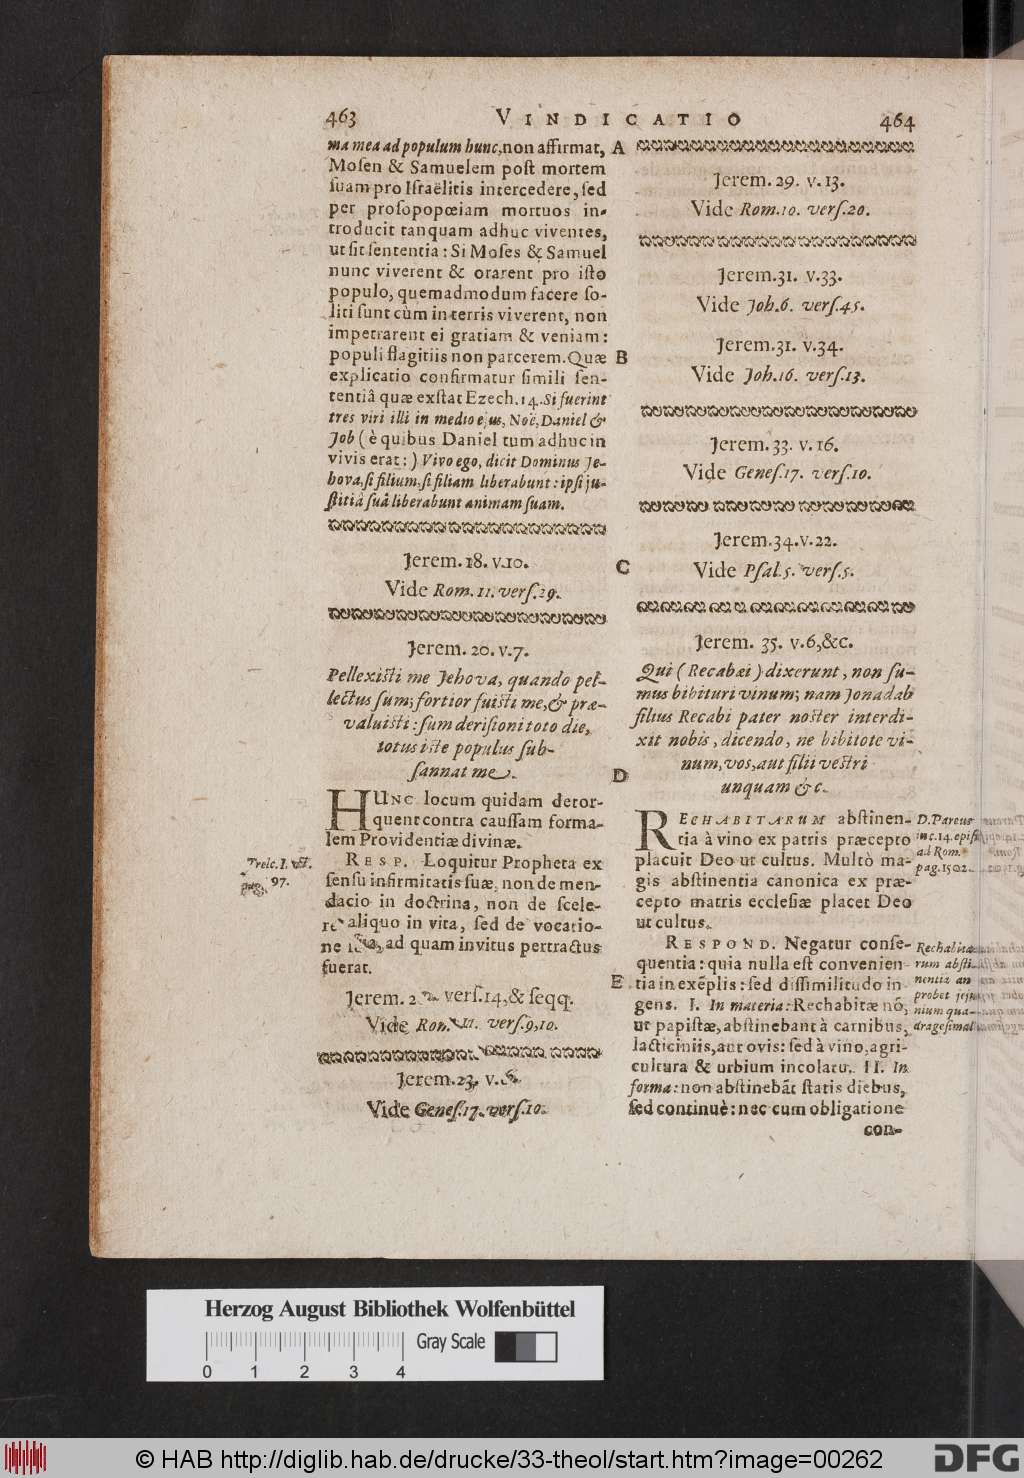 463 VINDICATIO 464
ma mea ad populum hunc, non affirmat, A
Mosen & Samuelem post mortem
suam pro Israëlitis intercedere, sed
per prosopopœiam mortuos in-
troducit tanquam adhuc viventes,
ut sit sententia: Si Moses & Samuel
nunc viverent & orarent pro isto
populo, quemadmodum facere so-
liti sunt cùm in terris viverent, non
impetrarent ei gratiam & veniam:
populi flagitiis non parcerem. Quæ B
explicatio confirmatur simili sen-
tentiâ quæ exstat Ezech. 14. Si fuerint
tres viri illi in medio ejus, Noë, Daniel &
Job (è quibus Daniel tum adhuc in
vivis erat:) Vivo ego, dicit Dominus Je-
hova, si filium, si filiam liberabunt: ipsi ju-
stitiâ suâ liberabunt animam suam.
Jerem. 18. v.10. C
Vide Rom. 11. vers. 29.
Jerem. 20. v.7.
Pellexisti me Jehova, quando pel-
lectus sum; fortior fuisti me, & præ-
valuisti: sum derisioni toto die,
totus iste populus sub-
sannat me. D
HUNC locum quidam detor-
quent contra caussam forma-
lem Providentiæ divinæ.
Trelc. l. ust.
pag. 97.
RESP. Loquitur Propheta ex
sensu infirmitatis suæ, non de men-
dacio in doctrina, non de scele-
re aliquo in vita, sed de vocatio-
ne ad quam invitus pertractus
fuerat.
Jerem. 2 vers. 14, & seqq.
Vide Rom. 11. vers. 9, 10.
Jerem. 23. v. 6.
Vide Genes. 17. vers. 10.
Jerem. 29. v. 13.
Vide Rom. 10. vers. 20.
Jerem. 31. v.33.
Vide Joh. 6. vers. 45.
Jerem. 31. v.34.
Vide Joh. 16. vers. 13.
Jerem. 33. v. 16.
Vide Genes. 17. vers. 10.
Jerem. 34. v. 22.
Vide Psal. 5. vers. 5.
Jerem. 35. v. 6, &c.
Qui (Recabæi) dixerunt, non su-
mus bibituri vinum; nam Jonadab
filius Recabi pater noster interdi-
xit nobis, dicendo, ne bibitote vi-
num, vos, aut filii vestri
unquam &c.
RECHABITARUM abstinen-
tia à vino ex patris præcepto
placuit Deo ut cultus. Multò ma-
gis abstinentia canonica ex præ-
cepto matris ecclesiæ placet Deo
ut cultus.
D. Pareus
in c. 14. epist.
ad Rom.
pag. 1502.
RESPOND. Negatur conse-
quentia: quia nulla est convenien-
E tia in exẽplis: sed dissimilitudo in-
gens. I. In materia: Rechabitæ nõ,
ut papistæ, abstinebant à carnibus,
lacticiniis, aut ovis: sed à vino, agri-
cultura & urbium incolatu. II. In
forma: non abstinebãt statis diebus,
sed continuè: nec cum obligatione
con-
Rechabita-
rum absti-
nentia an
probet jeju-
nium qua-
dragesimal
Herzog August Bibliothek Wolfenbüttel
Gray Scale
0 1 2 3 4
© HAB http://diglib.hab.de/drucke/33-theol/start.htm?image=00262
DFG